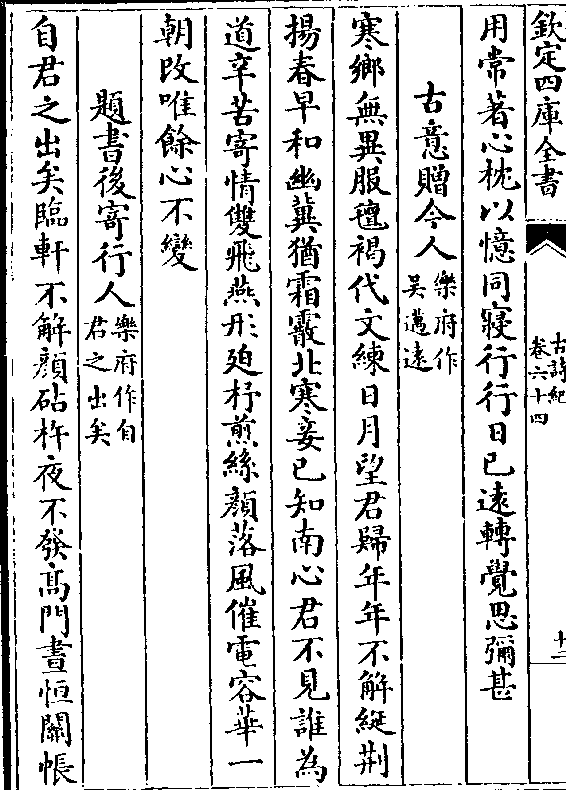 欽定四庫全書
古詩紀
卷六十四
十二
用常著心枕以憶同寢行行日已遠轉覺思彌甚
古意贈今人樂府作吳邁遠
寒鄉無異服氊褐代文練日月望君歸年年不解綖荆
揚春早和幽冀猶霜霰北寒妾已知南心君不見誰為
道辛苦寄情雙飛燕形廹杼煎絲顔落風催電容華一
朝改唯餘心不變
題書後寄行人樂府作自君之出矣
自君之出矣臨軒不解顔砧杵夜不發髙門晝恒關帳